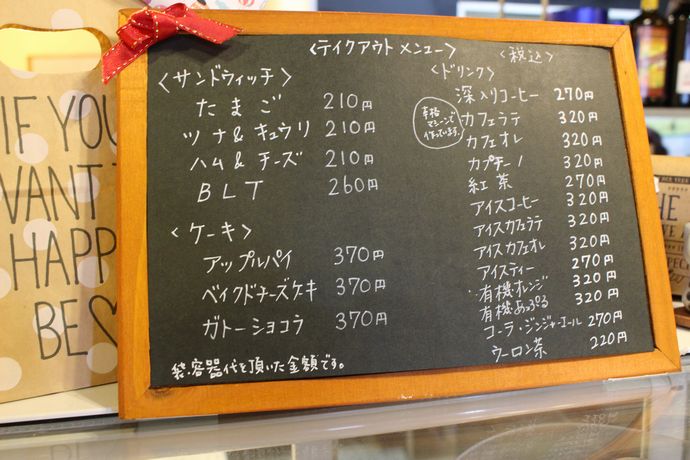 <テイクアウト メニュー>
<税込>
<サンドウィッチ>
たまご 210円
ツナ&キュウリ 210円
ハム&チーズ 210円
BLT 260円
<ケーキ>
アップルパイ 370円
ベイクドチーズケーキ 370円
ガトーショコラ 370円
袋・容器代を頂いた金額です。
<ドリンク>
深入りコーヒー 270円
カフェラテ 320円
マシーンで
作っています。
カフェオレ 320円
カプチーノ 320円
紅茶 270円
アイスコーヒー 320円
アイスカフェラテ 320円
アイスカフェオレ 320円
アイスティー 270円
・有機オレンジ 320円
有機あっぷる 320円
コーラ・ジンジャーエール 270円
ウーロン茶 220円
IF YOU
WANT
HAPP
BE
THE